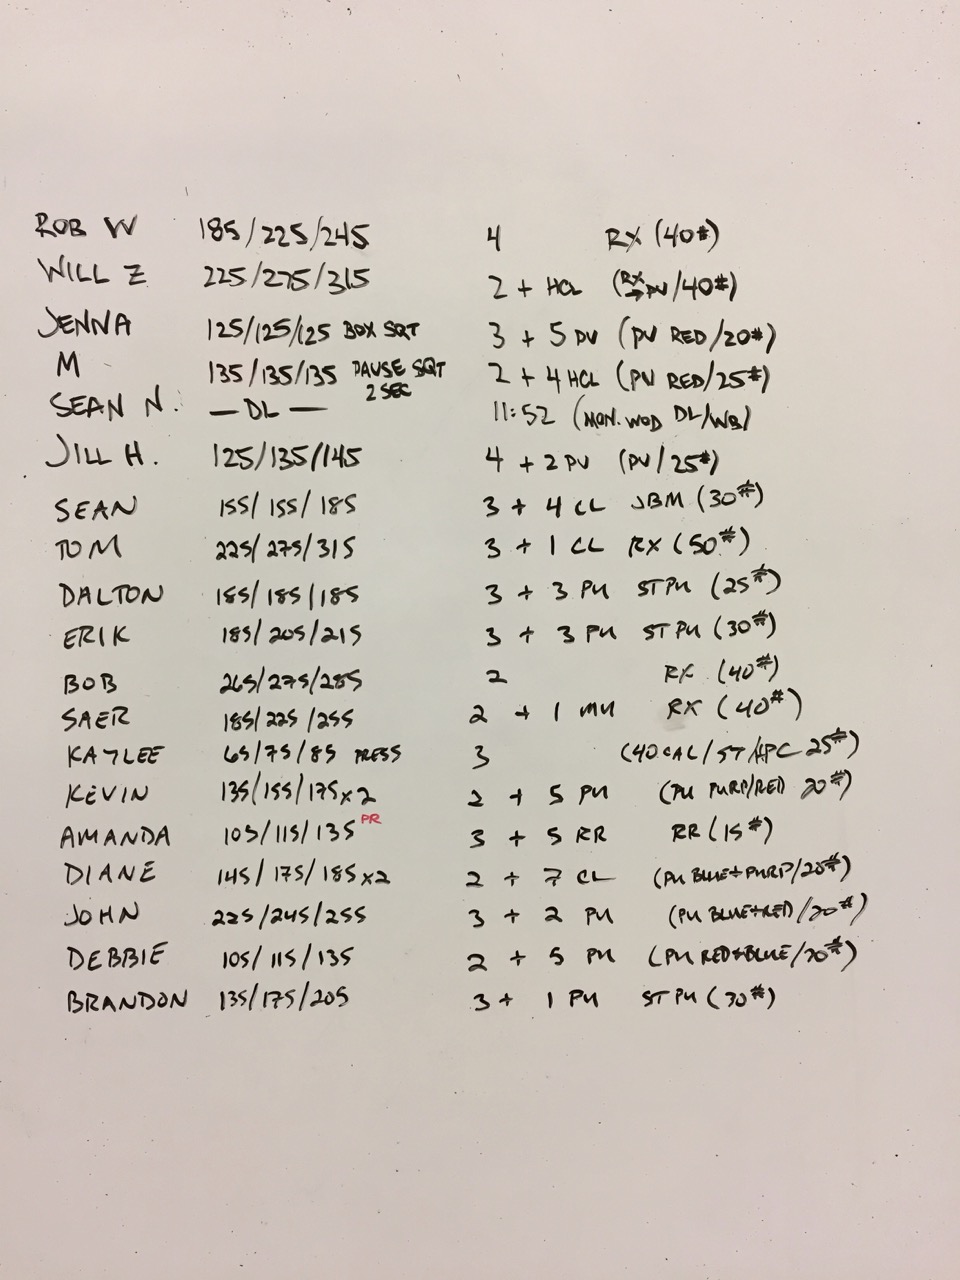 ROB W 185/225/245 4 RX (40#)
WILL Z 225/275/315 2 + HCL (RX → PU/40#)
JENNA 125/125/125 BOX SQT 3 + 5 PU (PU RED/20#)
M 135/135/135 PAUSE SQT 2 + 4 HCL (PU RED/25#)
2 SEC
SEAN N. — DL — 11:52 (MON. WOD DL/WB)
JILL H. 125/135/145 4 + 2 PU (PU/25#)
SEAN 155/155/185 3 + 4 CL JBM (30#)
TOM 225/275/315 3 + 1 CL RX (50#)
DALTON 185/185/185 3 + 3 PU ST PU (25#)
ERIK 185/205/215 3 + 3 PU ST PU (30#)
BOB 265/275/285 2 RX (40#)
SAER 185/225/255 2 + 1 MU RX (40#)
KAYLEE 65/75/85 PRESS 3 (40 CAL/ST/HPC 25#)
KEVIN 135/155/175x2 2 + 5 PU (PU PURP/RED 20#)
AMANDA 105/115/135 PR 3 + 5 RR RR (15#)
DIANE 145/175/185x2 2 + 7 CL (PU BLUE+PURP/20#)
JOHN 225/245/255 3 + 2 PU (PU BLUE+RED/20#)
DEBBIE 105/115/135 2 + 5 PU (PU RED+BLUE/20#)
BRANDON 135/175/205 3 + 1 PU ST PU (30#)